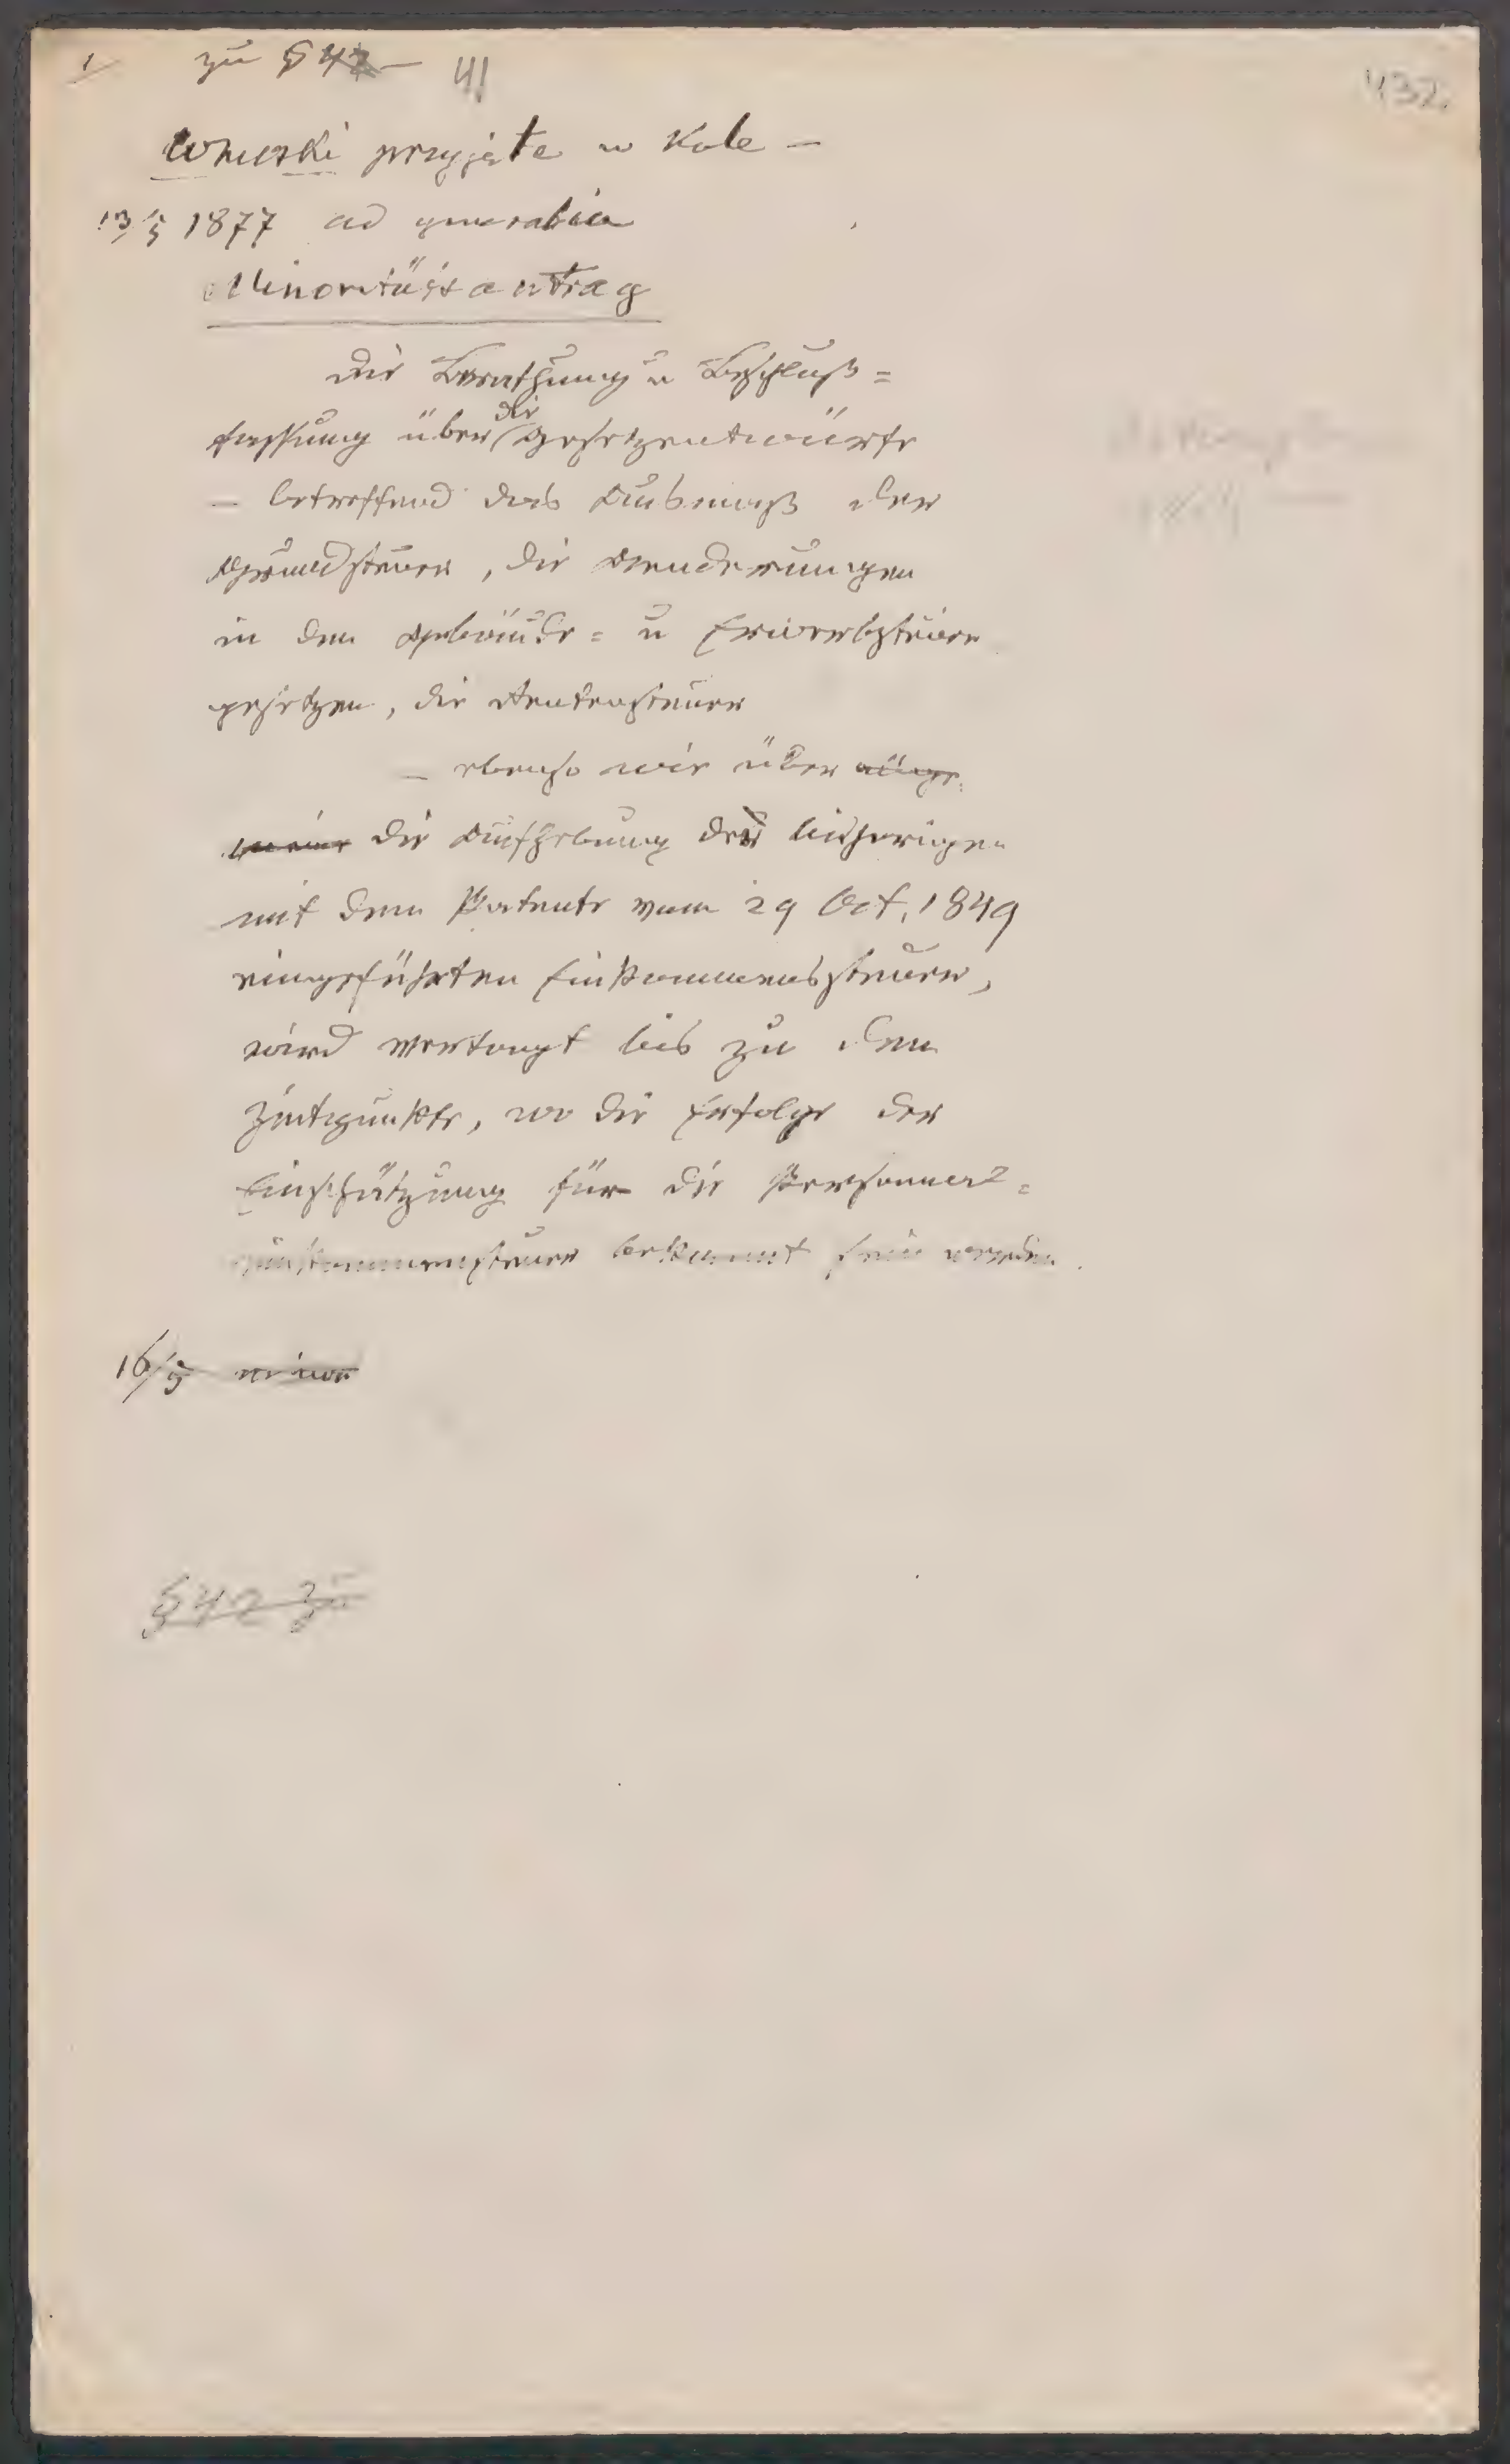 1/ zu § 42 – 41
432.
Wnioski przyjęte w Kole –
13/5 1877 ad generalia
Minoritätsantrag
Die Berathung u Beschluß=
fassung über die Gesetzentwürfe
– betreffend das Ausmaß der
Grundsteuer, die Aenderungen
in den Gebäude= u Erwerbsteuer
gesetzen, die Rentensteuer
– ebenso wie über
die Aufhebung der bisherigen
mit dem Patente vom 29 Oct. 1849
eingeführten Einkommenssteuer,
wird vertagt bis zu dem
Zeitpunkte, wo die Erfolge der
Einschätzung für die Personal=
einkommensteuer bekannt sein werden.
16/5
§ 42 zu